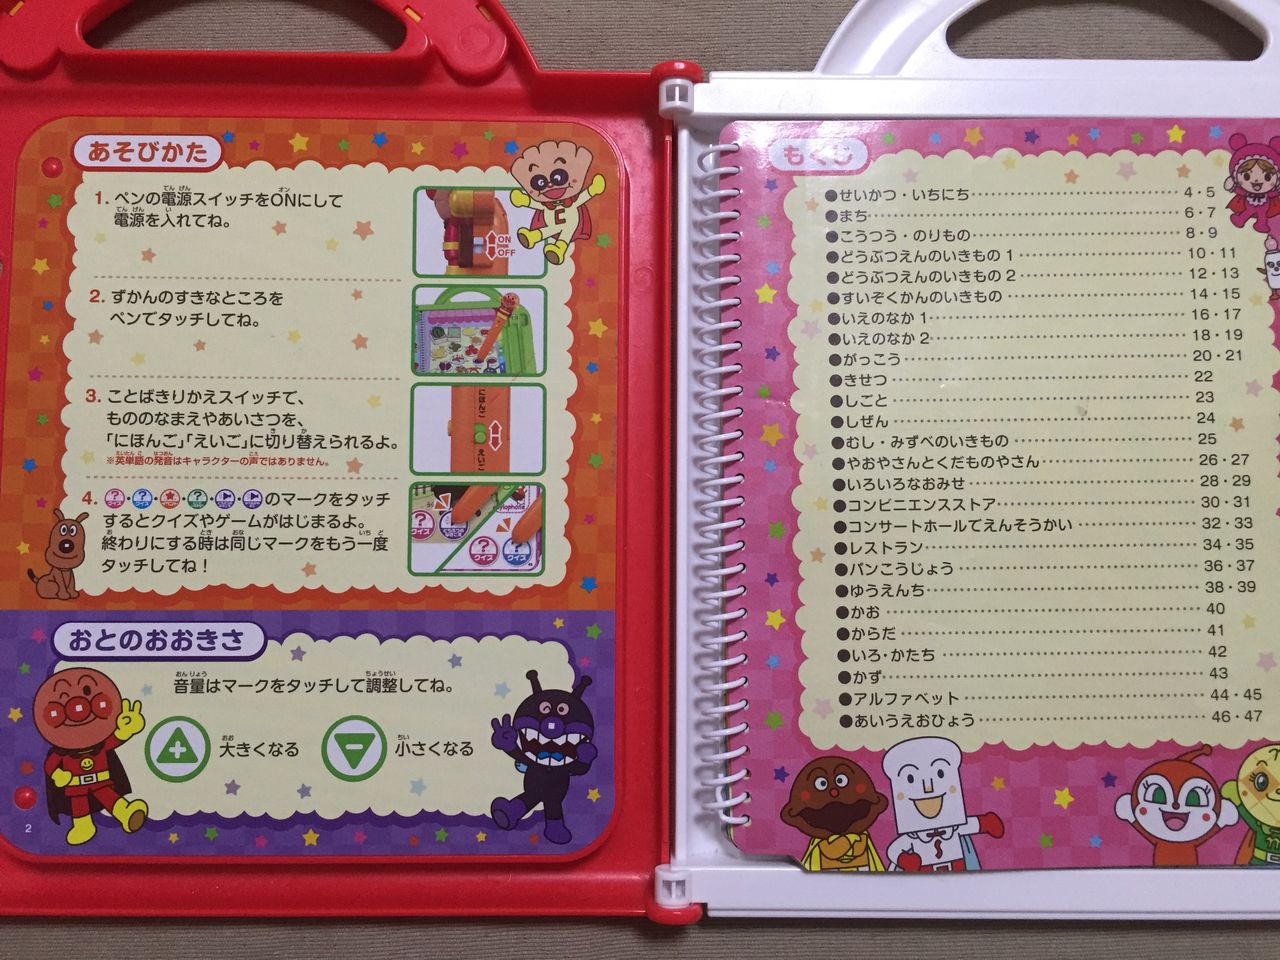 あそびかた
1. ペンの電源スイッチをONにして
電源を入れてね。
ON
OFF
2. ずかんのすきなところを
ペンでタッチしてね。
3. ことばきりかえスイッチで、
もののなまえやあいさつを、
「にほんご」「えいご」に切り替えられるよ。
※英単語の発音はキャラクターの声ではありません。
にほんご
えいご
4. ・・・・・のマークをタッチ
するとクイズやゲームがはじまるよ。
終わりにする時は同じマークをもう一度
タッチしてね!
クイズ
クイズ
クイズ
おとのおおきさ
音量はマークをタッチして調整してね。
大きくなる
小さくなる
2
もくじ
●せいかつ・いちにち 4・5
●まち 6・7
●こうつう・のりもの 8・9
●どうぶつえんのいきもの 1 10・11
●どうぶつえんのいきもの 2 12・13
●すいぞくかんのいきもの 14・15
●いえのなか 1 16・17
●いえのなか 2 18・19
●がっこう 20・21
●きせつ 22
●しごと 23
●しぜん 24
●むし・みずべのいきもの 25
●やおやさんとくだものやさん 26・27
●いろいろなおみせ 28・29
●コンビニエンスストア 30・31
●コンサートホールでえんそうかい 32・33
●レストラン 34・35
●パンこうじょう 36・37
●ゆうえんち 38・39
●かお 40
●からだ 41
●いろ・かたち 42
●かず 43
●アルファベット 44・45
●あいうえおひょう 46・47